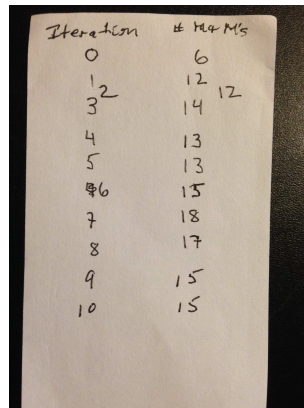 Iteration # M&M's
0 6
1 12
2 12
3 14
4 13
5 13
6 15
7 18
8 17
9 15
10 15